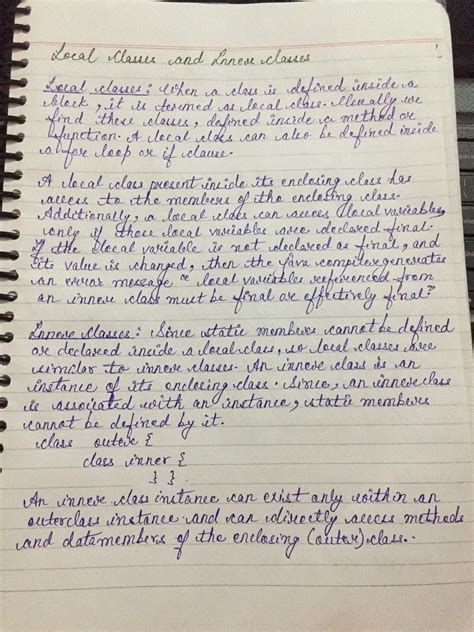 Local Classes and Inner classes
Local classes: When a class is defined inside a
block, it is termed as local class. Usually we
find these classes, defined inside a method or
function. A local class can also be defined inside
a for loop or if clause.
A local class present inside its enclosing class has
access to the members of the enclosing class.
Additionally, a local class can access local variables
only if those local variables are declared final.
If the local variable is not declared as final, and
its value is changed, then the Java compiler generates
an error message "local variables referenced from
an inner class must be final or effectively final"
Inner Classes: Since static members cannot be defined
or declared inside a local class, so local classes are
similar to inner classes. An inner class is an
instance of its enclosing class. Since, an inner class
is associated with an instance, static members
cannot be defined by it.
class outer {
class inner {
} }
An inner class instance can exist only within an
outerclass instance and can directly access methods
and datamembers of the enclosing (outer) class.